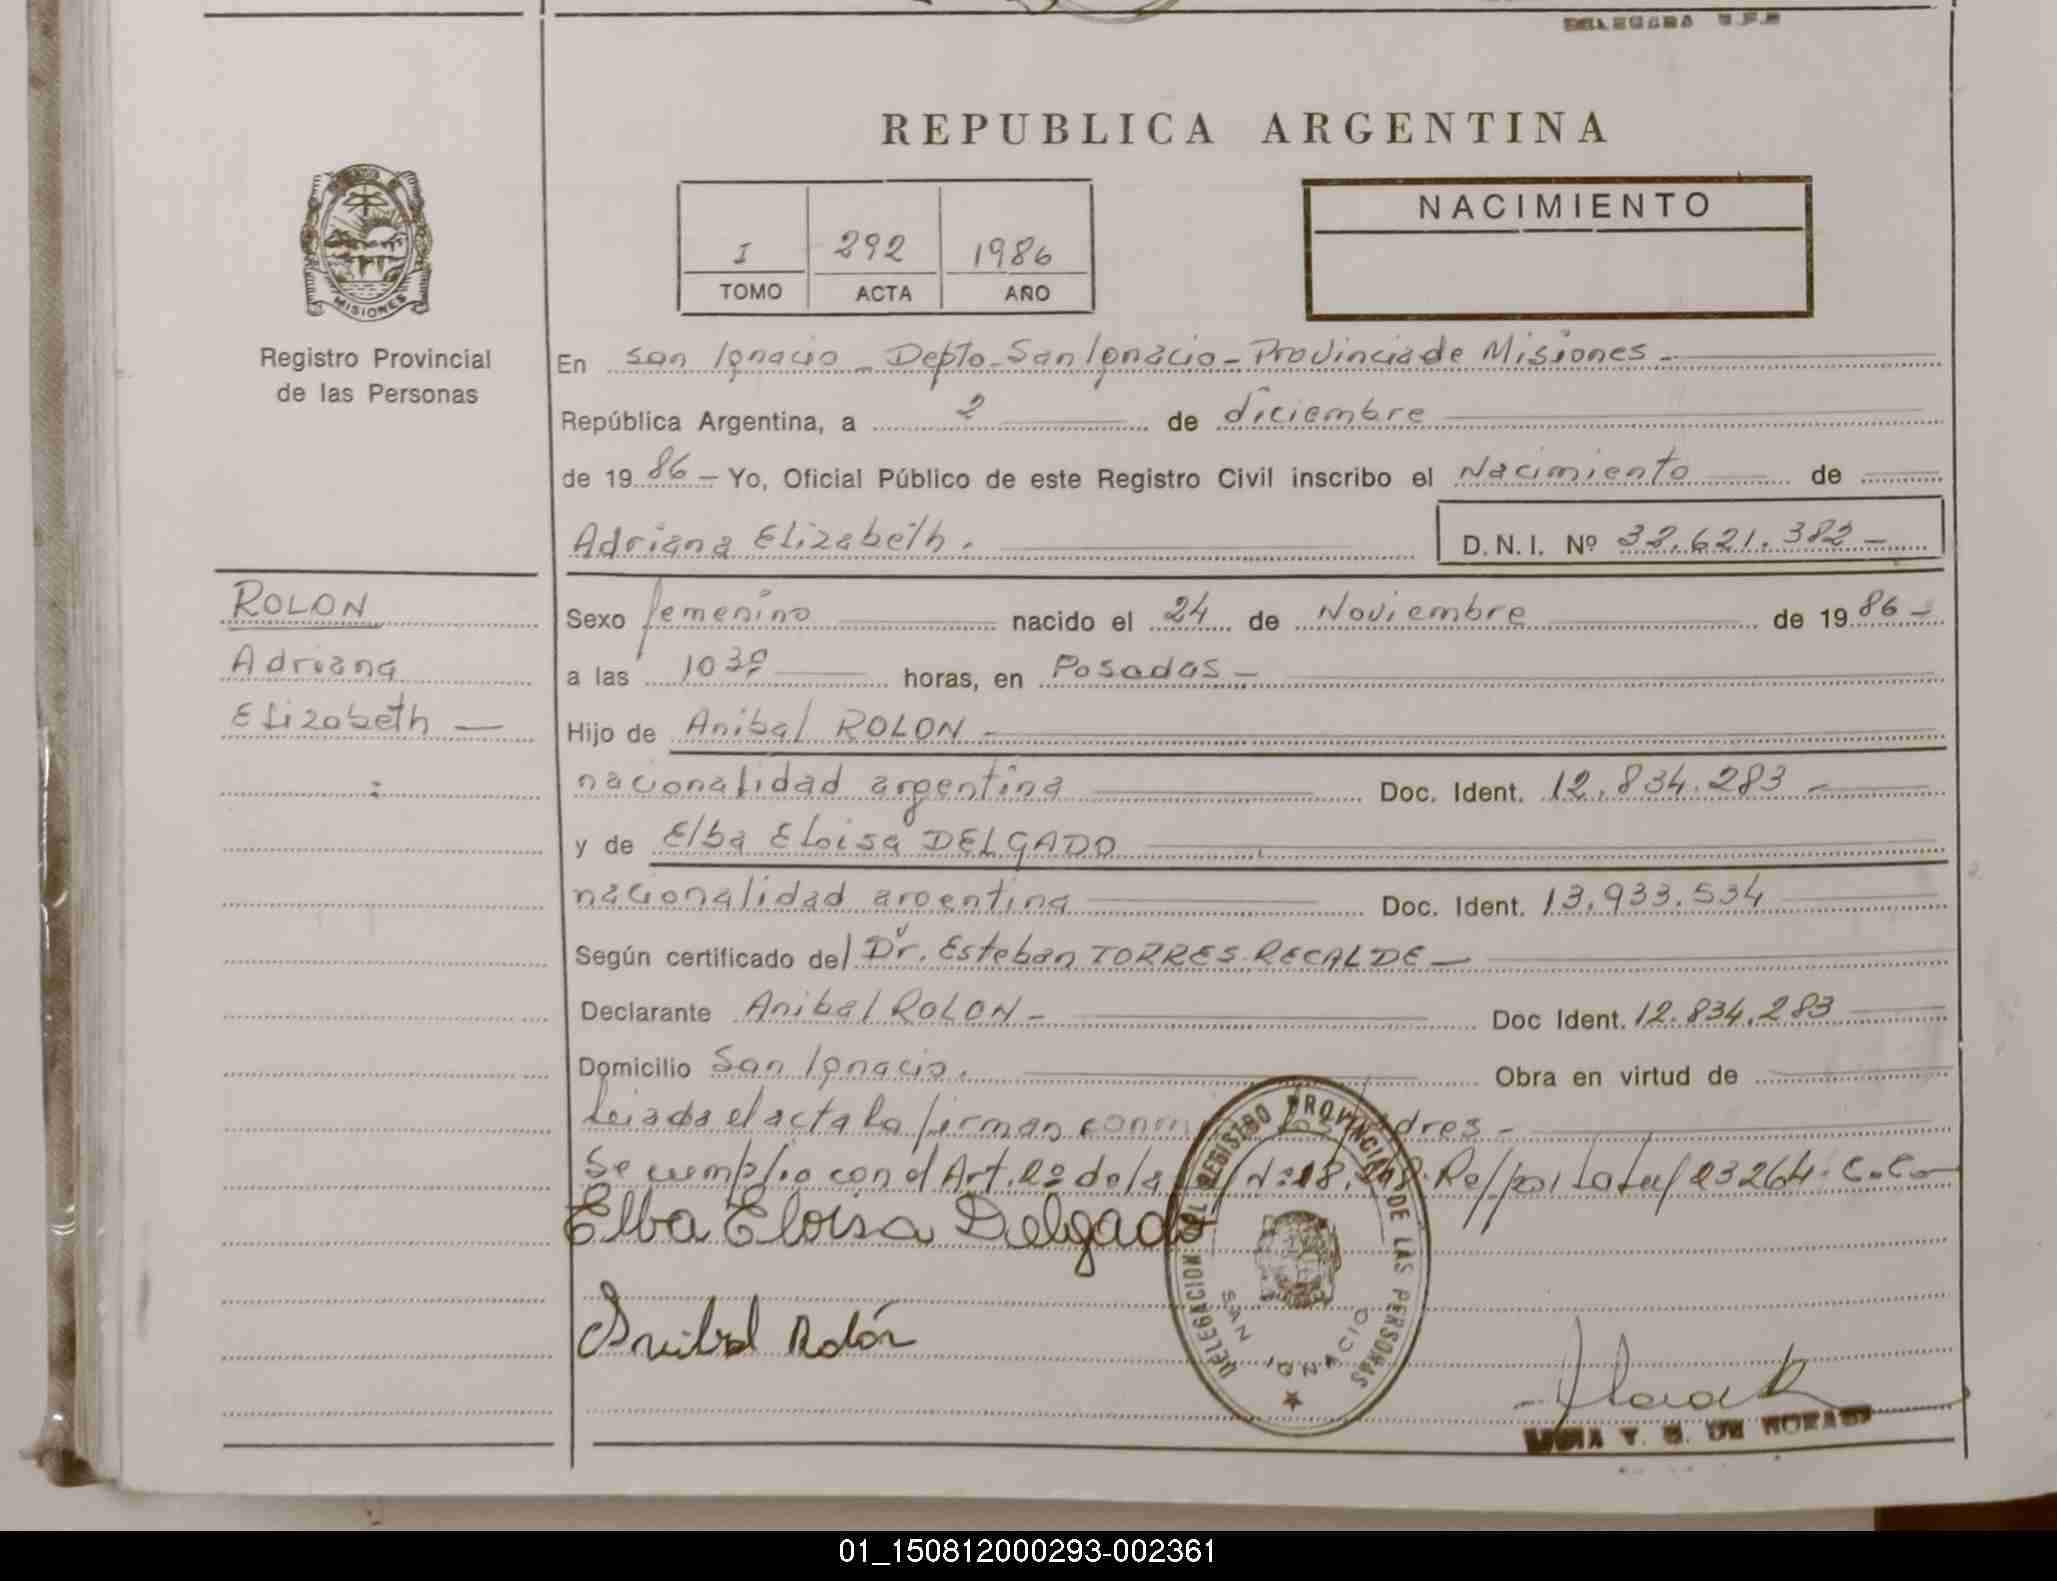 REPUBLICA ARGENTINA
NACIMIENTO
I 292 1986
TOMO ACTA AÑO
MISIONES
Registro Provincial
de las Personas
En San Ignacio - Depto. San Ignacio - Provincia de Misiones -
República Argentina, a 2 de diciembre
de 1986 - Yo, Oficial Público de este Registro Civil inscribo el Nacimiento de
Adriana Elizabeth. D.N.I. Nº 32.621.382 -
ROLON
Adriana
Elizabeth -
Sexo femenino nacido el 24 de Noviembre de 1986 -
a las 10 30 horas, en Posadas -
Hijo de Anibal ROLON -
nacionalidad argentina Doc. Ident. 12.834.283 -
y de Elba Eloisa DELGADO
nacionalidad argentina Doc. Ident. 13.933.534
Según certificado del Dr. Esteban TORRES RECALDE -
Declarante Anibal ROLON - Doc Ident. 12.834.283
Domicilio San Ignacio. Obra en virtud de
Leiada el acta la firman
Se cumplio con el Art. 2º de la Nº 18. 23264.
Elba Eloisa Delgado
Anibal Rolón
DELEGACION DEL REGISTRO PROVINCIAL DE LAS PERSONAS
SAN IGNACIO
01_150812000293-002361